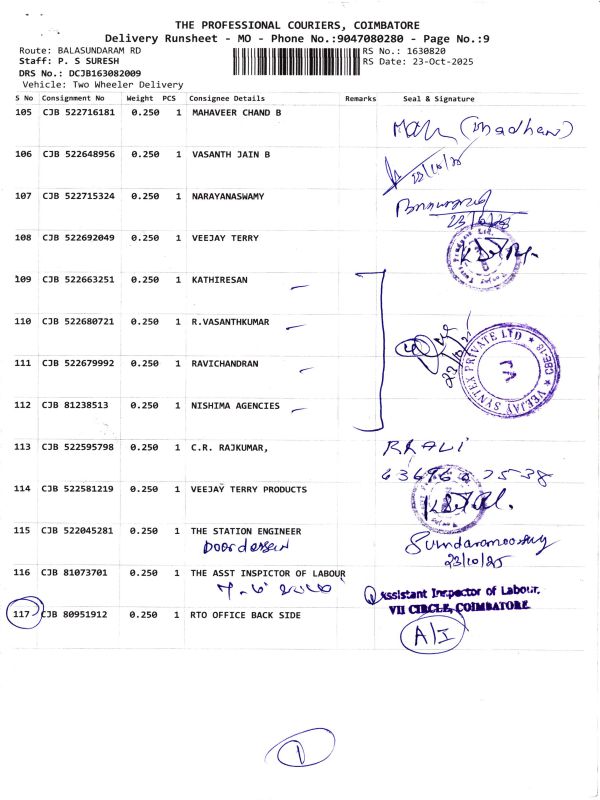 THE PROFESSIONAL COURIERS, COIMBATORE
Delivery Runsheet - MO - Phone No.:9047080280 - Page No.:9
Route: BALASUNDARAM RD RS No.: 1630820
Staff: P. S SURESH RS Date: 23-Oct-2025
DRS No.: DCJB163082009
Vehicle: Two Wheeler Delivery
S No Consignment No Weight PCS Consignee Details Remarks Seal & Signature
105 CJB 522716181 0.250 1 MAHAVEER CHAND B
(Madhan)
106 CJB 522648956 0.250 1 VASANTH JAIN B
23/10/25
107 CJB 522715324 0.250 1 NARAYANASWAMY
108 CJB 522692049 0.250 1 VEEJAY TERRY
109 CJB 522663251 0.250 1 KATHIRESAN
110 CJB 522680721 0.250 1 R.VASANTHKUMAR
4
23/10/25
VEEJAY SYNTEX PRIVATE LTD ★ CBE-18 ★
111 CJB 522679992 0.250 1 RAVICHANDRAN
112 CJB 81238513 0.250 1 NISHIMA AGENCIES
113 CJB 522595798 0.250 1 C.R. RAJKUMAR,
RRALI
114 CJB 522581219 0.250 1 VEEJAY TERRY PRODUCTS
115 CJB 522045281 0.250 1 THE STATION ENGINEER
Sundaramoorthy
23/10/25
116 CJB 81073701 0.250 1 THE ASST INSPICTOR OF LABOUR
Assistant Inspector of Labour,
VII CIRCLE, COIMBATORE
117 CJB 80951912 0.250 1 RTO OFFICE BACK SIDE
A/I
1